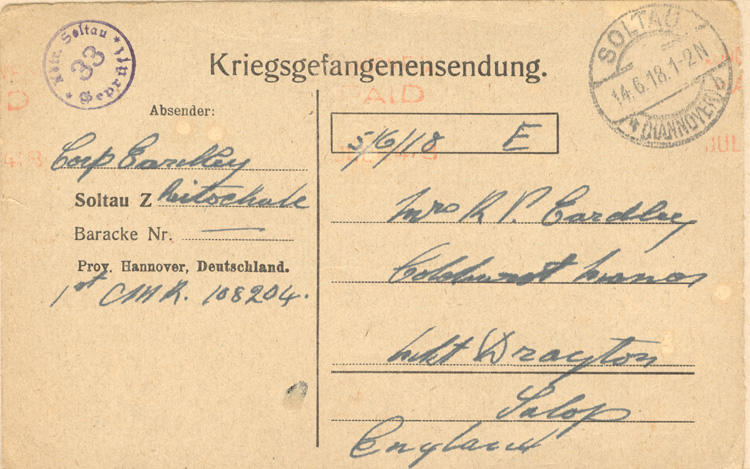 Abtn. Soltau
33
Geprüft
Kriegsgefangenensendung.
SOLTAU
14.6.18.1-2N
(HANNOVER)
PAID
Absender:
Corp Eardley
Soltau Z Reitschule
Baracke Nr. —
Prov. Hannover, Deutschland.
1st CMR. 108204.
5/6/18 E
Mrs R P. Eardley
Manor
Mkt Drayton
Salop
England